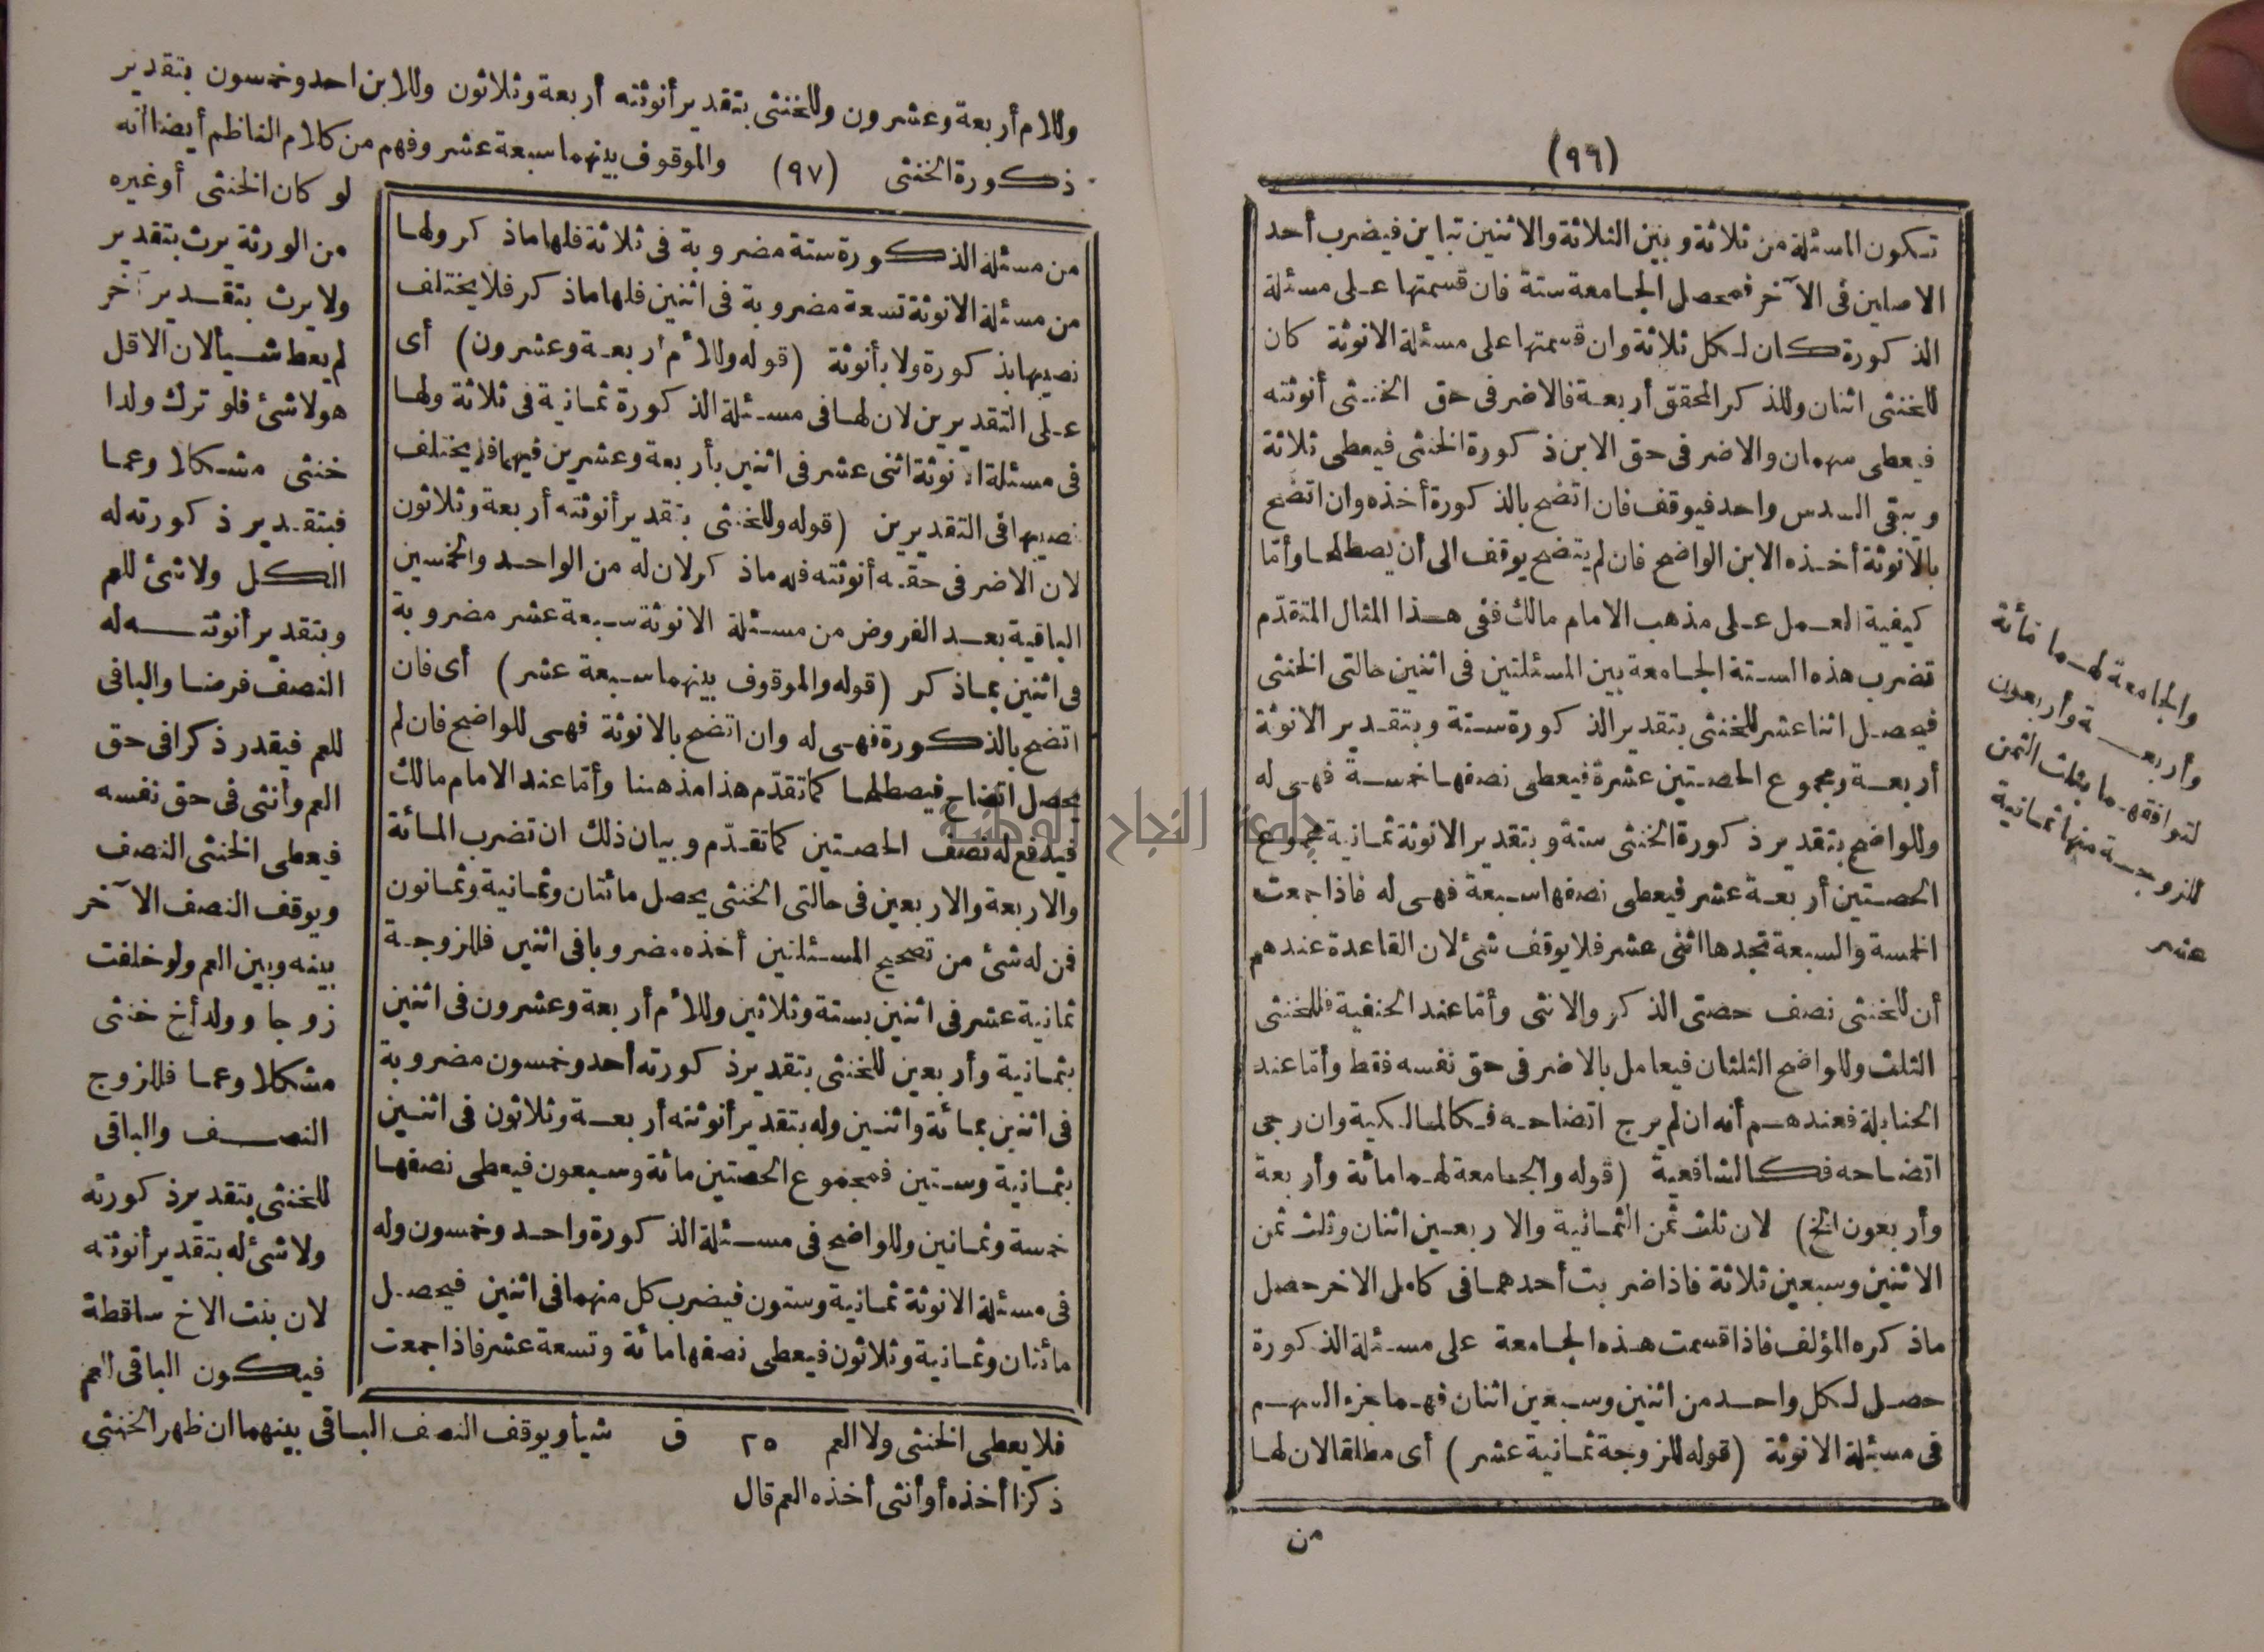 (٩٦)
تكون المسئلة من ثلاثة وبين الثلاثة والاثنين تباين فيضرب أحد
الاصلين فى الآخر فمحصل الجامعة ستة فان قسمتها على مسئلة
الذكورة كان لكل ثلاثة وان قسمتها على مسئلة الانوثة كان
للخنثى اثنان وللذكر المحقق أربعة فالاضر فى حق الخنثى أنوثته
فيعطى سهمان والاضر فى حق الابن ذكورة الخنثى فيعطى ثلاثة
ويبقى السدس واحد فيوقف فان اتضح بالذكورة أخذه وان اتضح
بالانوثة أخذه الابن الواضح فان لم يتضح يوقف الى أن يصطلحا وأمّا
كيفية العمل على مذهب الامام مالك ففى هذا المثال المتقدّم
تضرب هذه الستة الجامعة بين المسئلتين فى اثنين حالتى الخنثى
فيحصل اثنا عشر للخنثى بتقدير الذكورة ستة وبتقدير الانوثة
أربعة ومجموع الحصتين عشرة فيعطى نصفها خمسة فهى له
وللواضح بتقدير ذكورة الخنثى ستة وبتقدير الانوثة ثمانية مجموع
الحصتين أربعة عشر فيعطى نصفها سبعة فهى له فاذا جمعت
الخمسة والسبعة تجدها اثنى عشر فلا يوقف شئ لان القاعدة عندهم
أن للخنثى نصف حصتى الذكر والانثى وأمّا عند الحنفية فللخنثى
الثلث وللواضح الثلثان فيعامل بالاضر فى حق نفسه فقط وأمّا عند
الحنابلة فعندهم أنه ان لم يرج اتضاحه فكالمالكية وان رجى
اتضاحه فكالشافعية (قوله والجامعة لهما مائة وأربعة
وأربعون الخ) لان ثلث ثمن الثمانية والاربعين اثنان وثلث ثمن
الاثنين وسبعين ثلاثة فاذا ضربت أحدهما فى كامل الاخر حصل
ماذكره المؤلف فاذا قسمت هذه الجامعة على مسئلة الذكورة
حصل لكل واحد من اثنين وسبعين اثنان فهما جزء السهم
فى مسئلة الانوثة (قوله للزوجة ثمانية عشر) أى مطلقا لان لها
من
والجامعة لهما مائة
وأربعة وأربعون
لتوافقهما بثلث الثمن
للزوجة منها ثمانية
عشر
وللام أربعة وعشرون وللخنثى بتقدير أنوثته أربعة وثلاثون وللابن احد وخمسون بتقدير
ذكورة الخنثى (٩٧) والموقوف بينهما سبعة عشر وفهم من كلام الناظم أيضا أنه
لو كان الخنثى أو غيره
من الورثة يرث بتقدير
ولا يرث بتقدير آخر
لم يعط شيأ لان الاقل
هو لا شئ فلو ترك ولدا
خنثى مشكلا وعما
فبتقدير ذكورته له
الكل ولا شئ للعم
وبتقدير أنوثته له
النصف فرضا والباقى
للعم فيقدر ذكرا فى حق
العم وأنثى فى حق نفسه
فيعطى الخنثى النصف
ويوقف النصف الآخر
بينه وبين العم ولو خلفت
زوجا وولد أخ خنثى
مشكلا وعما فللزوج
النصف والباقى
للخنثى بتقدير ذكورته
ولا شئ له بتقدير أنوثته
لان بنت الاخ ساقطة
فيكون الباقى للعم
من مسئلة الذكورة ستة مضروبة فى ثلاثة فلها ماذكر ولها
من مسئلة الانوثة تسعة مضروبة فى اثنين فلها ماذكر فلا يختلف
نصيبها بذكورة ولا بأنوثة (قوله وللأم أربعة وعشرون) أى
على التقديرين لان لها فى مسئلة الذكورة ثمانية فى ثلاثة ولها
فى مسئلة الانوثة اثنى عشر فى اثنين بأربعة وعشرين فيهما فلم يختلف
نصيبها فى التقديرين (قوله وللخنثى بتقدير أنوثته أربعة وثلاثون
لان الاضر فى حقه أنوثته فله ماذكر لان له من الواحد والخمسين
الباقية بعد الفروض من مسئلة الانوثة سبعة عشر مضروبة
فى اثنين بماذكر (قوله والموقوف بينهما سبعة عشر) أى فان
اتضح بالذكورة فهى له وان اتضح بالانوثة فهى للواضح فان لم
يحصل اتضاح فيصطلحا كما تقدّم هذا مذهبنا وأمّا عند الامام مالك
فيدفع له نصف الحصتين كما تقدّم وبيان ذلك ان تضرب المائة
والاربعة والاربعين فى حالتى الخنثى يحصل مائتان وثمانية وثمانون
فمن له شئ من تصحيح المسئلتين أخذه مضروبا فى اثنين فللزوجة
ثمانية عشر فى اثنين بستة وثلاثين وللأم أربعة وعشرون فى اثنين
بثمانية وأربعين للخنثى بتقدير ذكورته أحد وخمسون مضروبة
فى اثنين بمائة واثنين وله بتقدير أنوثته أربعة وثلاثون فى اثنين
بثمانية وستين فمجموع الحصتين مائة وسبعون فيعطى نصفها
خمسة وثمانين وللواضح فى مسئلة الذكورة واحد وخمسون وله
فى مسئلة الانوثة ثمانية وستون فيضرب كل منهما فى اثنين فيحصل
مائتان وثمانية وثلاثون فيعطى نصفها مائة وتسعة عشر فاذا جمعت
فلا يعطى الخنثى ولا العم ٢٥ ق شيأ ويوقف النصف الباقى بينهما ان ظهر الخنثى
ذكرا أخذه أو أنثى أخذه العم قال
جامعة النجاح الوطنية